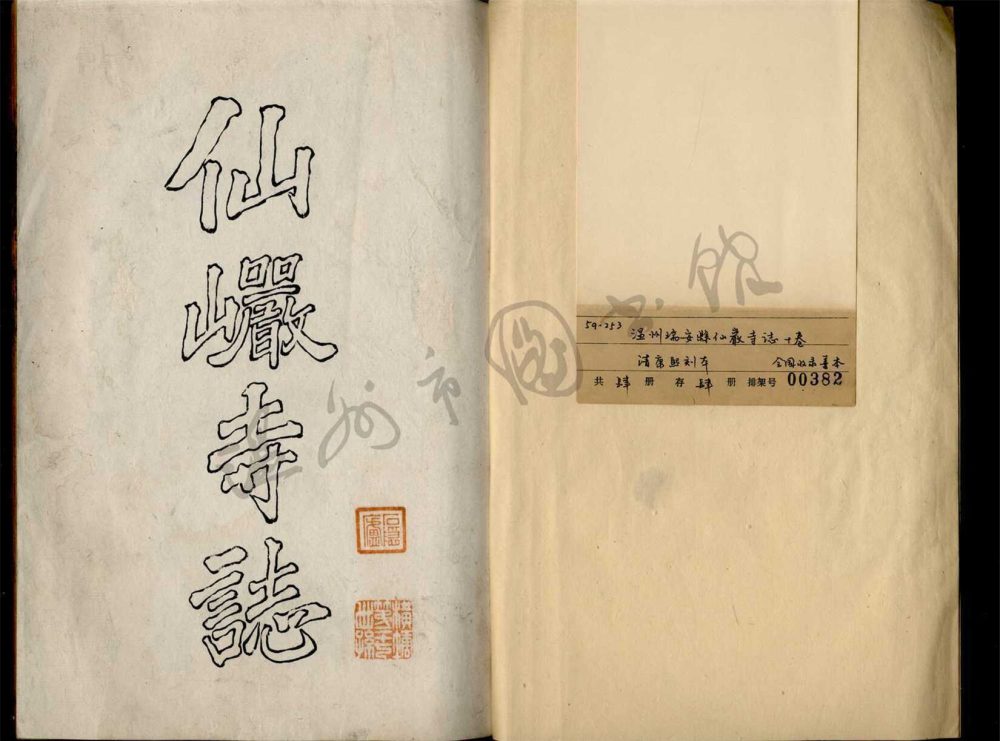 仙
巗
寺
誌
59-253 温州瑞安縣仙巖寺誌十卷
清康熙刻本 全国收录善本
共 肆 册 存 肆 册 排架号 00382
温州市圖书館